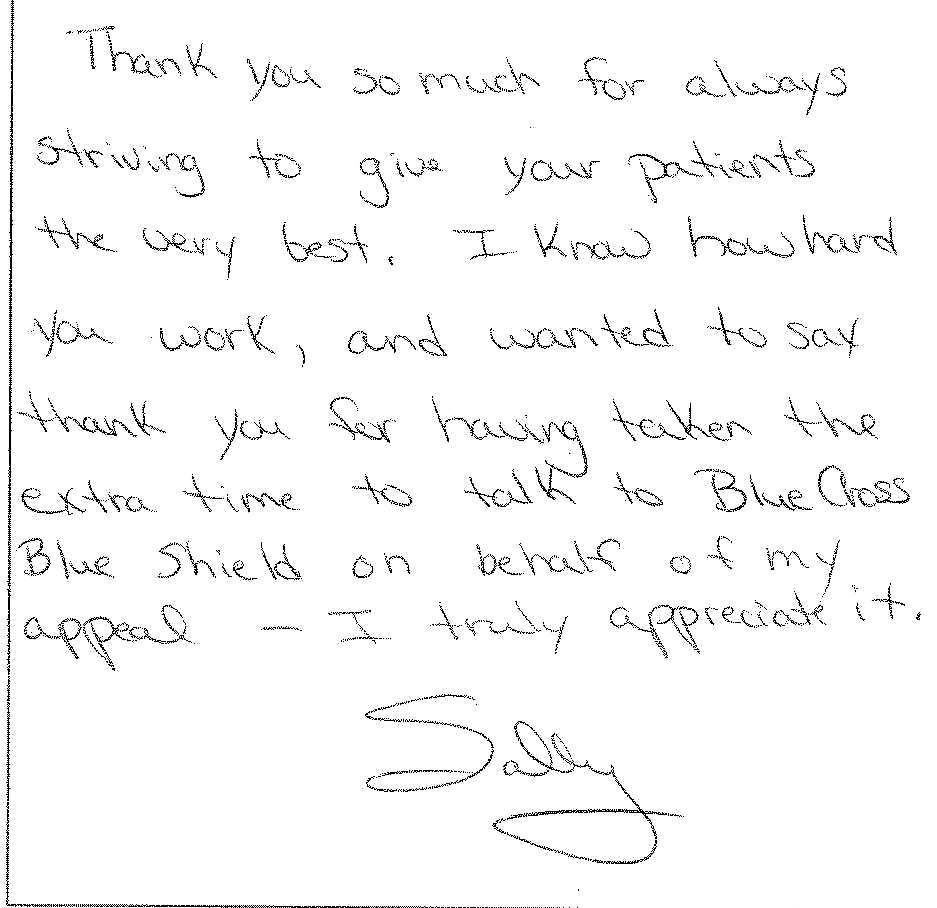 Thank you so much for always
striving to give your patients
the very best. I know how hard
you work, and wanted to say
thank you for having taken the
extra time to talk to Blue Cross
Blue Shield on behalf of my
appeal – I truly appreciate it.
Sally